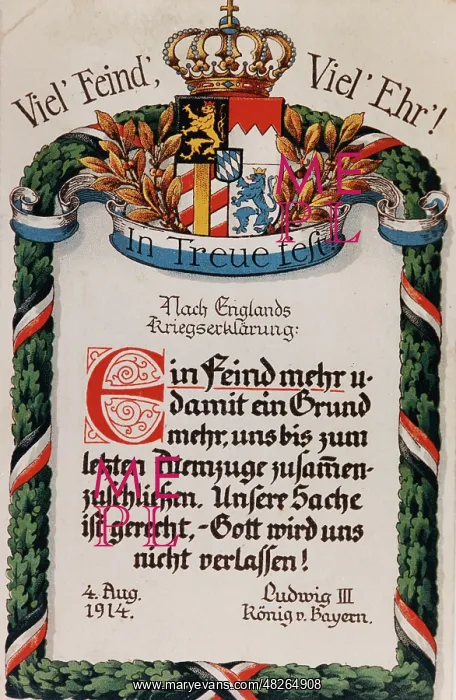 Viel' Feind', Viel' Ehr'!
In Treue fest
Nach Englands
Kriegserklärung:
Ein Feind mehr u.
damit ein Grund
mehr, uns bis zum
letzten Atemzuge zusam̅en-
zuschließen. Unsere Sache
ist gerecht, - Gott wird uns
nicht verlassen!
4. Aug. Ludwig III
1914. König v. Bayern.
ME
PL
ME
PL
www.maryevans.com/48264908